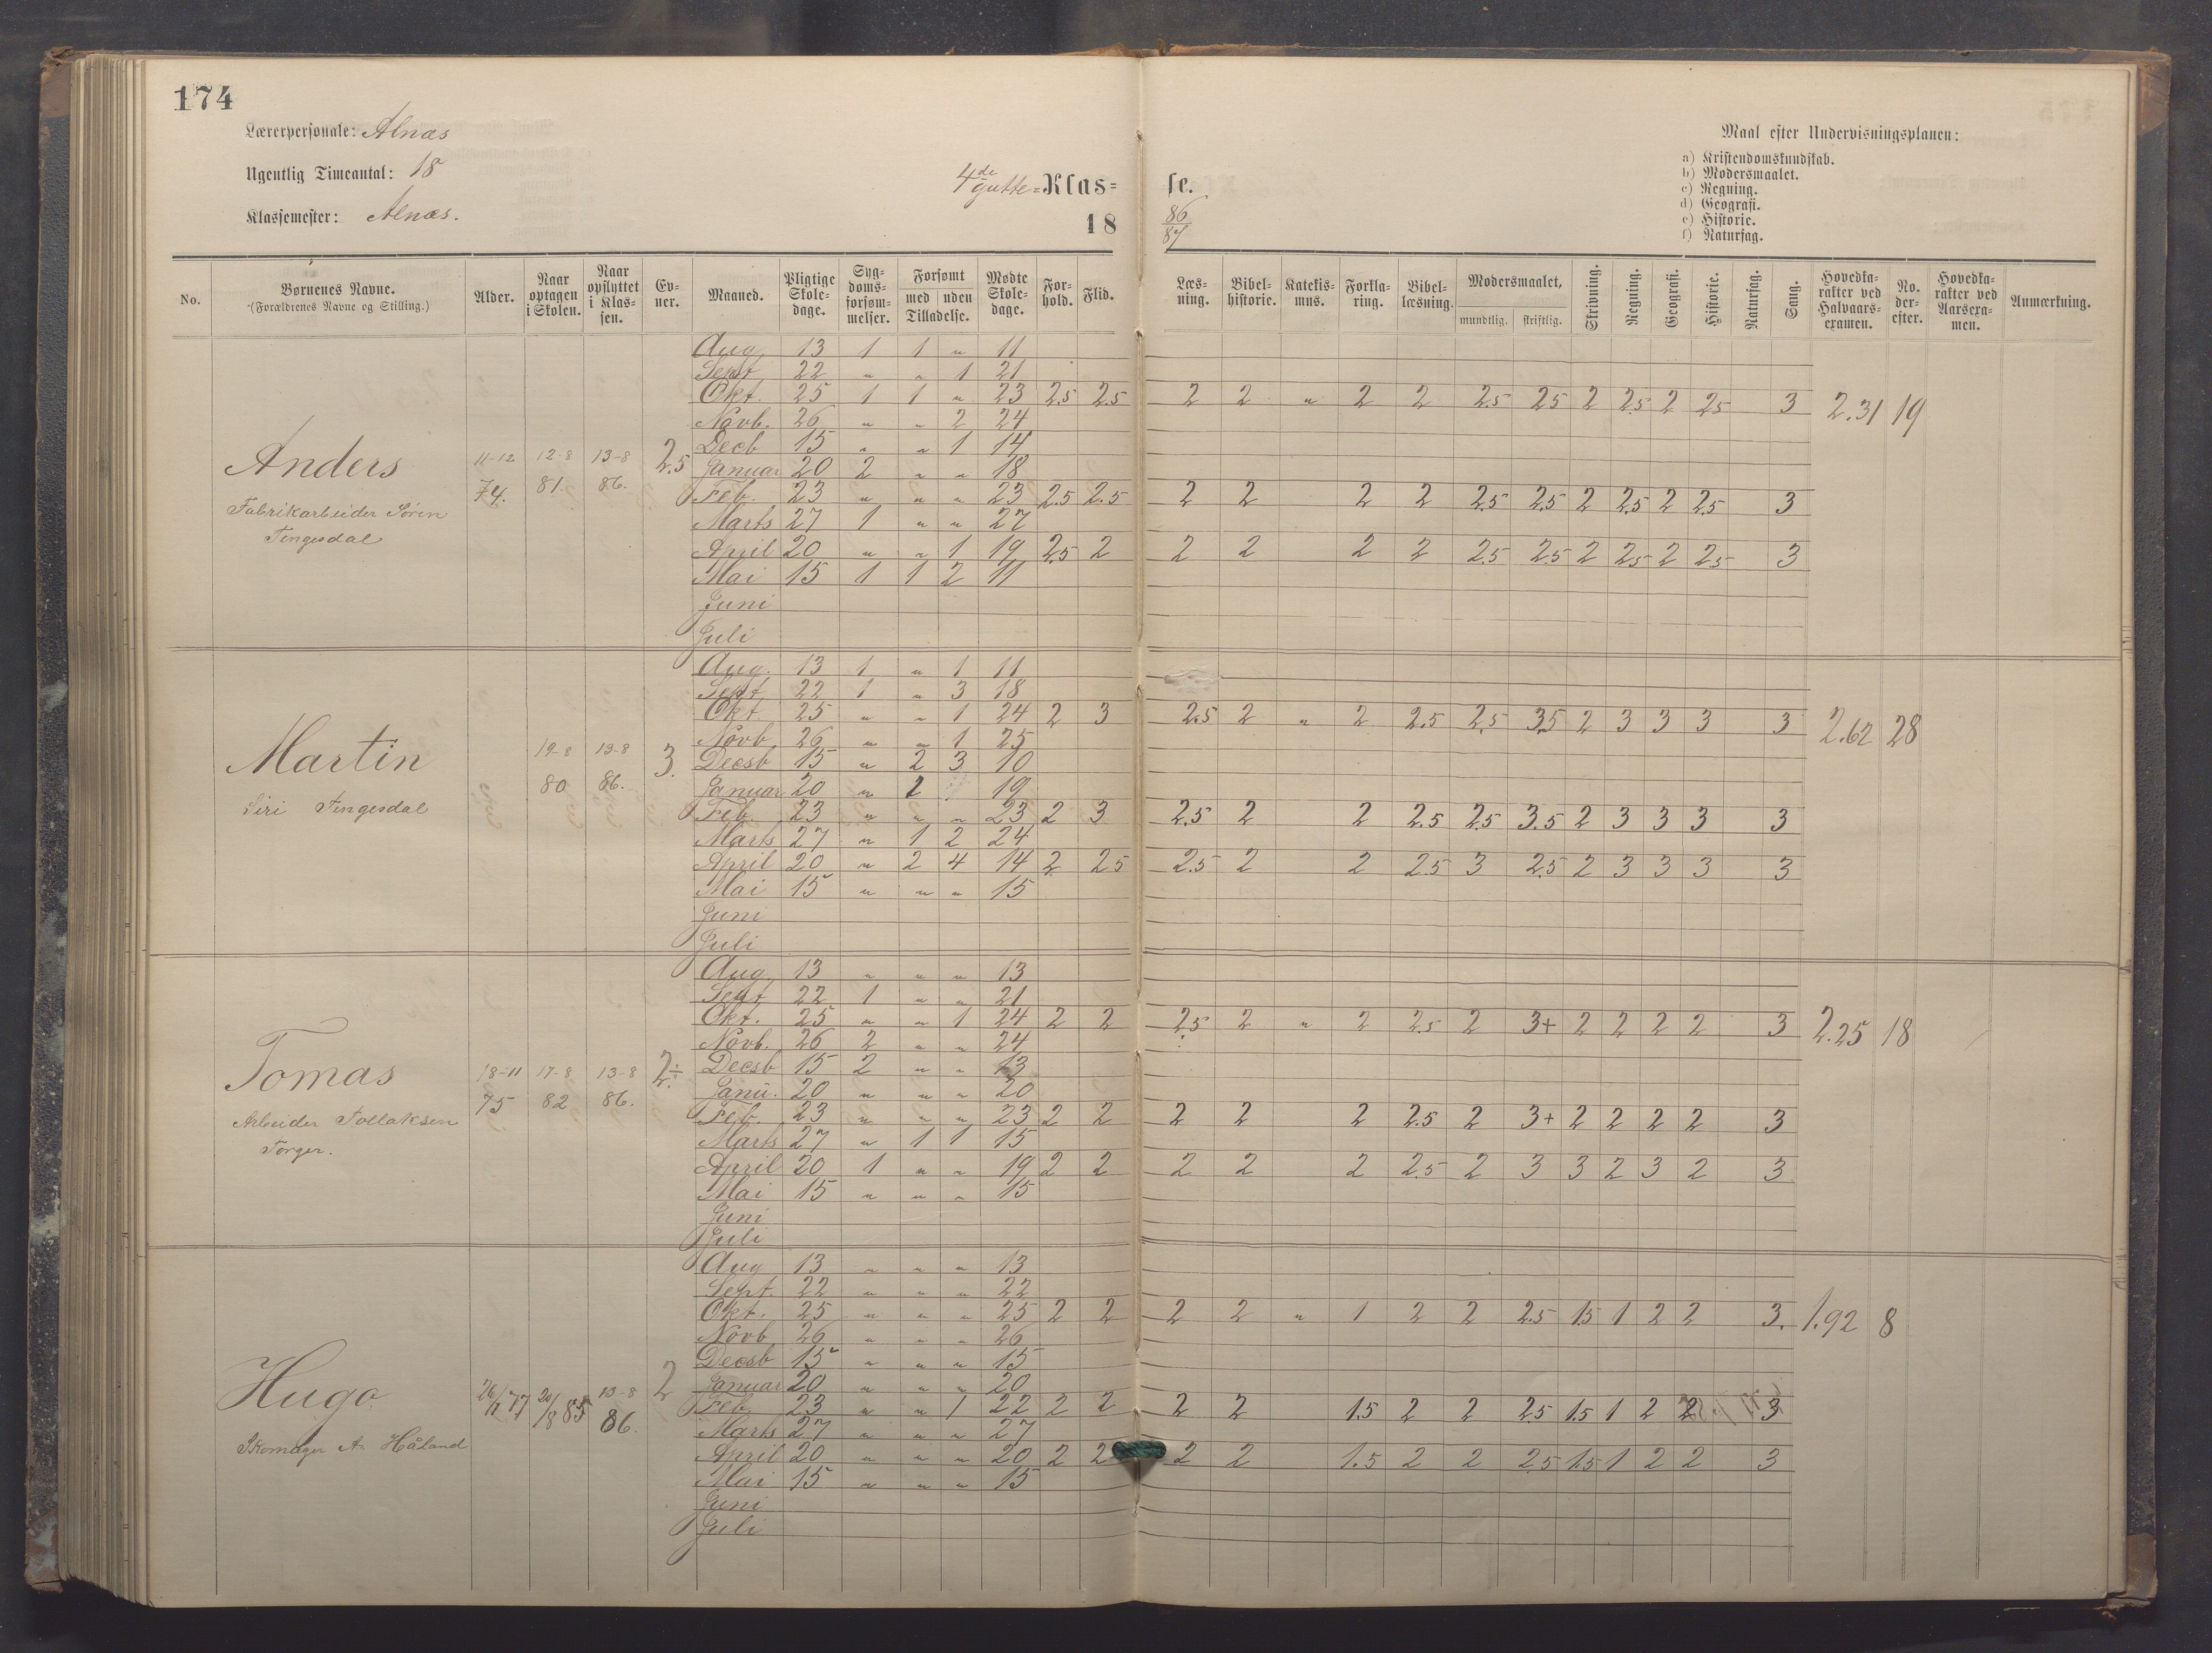 174
Lærerpersonale: Alnæs
Ugentlig Timeantal: 18
Klassemester: Alnæs.
4de Gutte=Klas= se.
18 86/87
Maal efter Undervisningsplanen:
a) Kristendomskundskab.
b) Modersmaalet.
c) Regning.
d) Geografi.
e) Historie.
f) Naturfag.
No. | Børnenes Navne. (Forældrenes Navne og Stilling.) | Alder. | Naar optagen i Skolen. | Naar opflyttet i Klas- sen. | Ev- ner. | Maaned. | Pligtige Skole- dage. | Syg- doms- forsøm- melser. | Forsømt med uden Tilladelse. | Mødte Skole- dage. | For- hold. | Flid. | Læs- ning. | Bibel- historie. | Katekis- mus. | Forkla- ring. | Bibel- læsning. | Modersmaalet, mundtlig. skriftlig. | Skrivning. | Regning. | Geografi. | Historie. | Naturfag. | Sang. | Hovedka- rakter ved Halvaars- examen. | No. der- efter. | Hovedka- rakter ved Aarsexa- men. | Anmærkning.
Anders
Fabrikarbeider Sören
Tengesdal
11-12 74. | 12-8 81. | 13-8 86. | 2.5
Aug. 13 1 1 " 11
Sept 22 " " 1 21
Okt. 25 1 1 " 23 2.5 2.5 2 2 " 2 2 2.5 2.5 2 2.5 2 2.5 3 2.31 19
Novb. 26 " " 2 24
Decb 15 " " 1 14
Januar 20 2 " " 18
Feb. 23 " " " 23 2.5 2.5 2 2 2 2 2.5 2.5 2 2.5 2 2.5 3
Marts 27 1 " " 27
April 20 " " 1 19 2.5 2 2 2 2 2 2.5 2.5 2 2.5 2 2.5 3
Mai 15 1 1 2 11
Juni
Juli
Martin
Siri Tengesdal
19-8 80 | 13-8 86. | 3.
Aug. 13 1 " 1 11
Sept 22 1 " 3 18
Okt. 25 " " 1 24 2 3 2.5 2 " 2 2.5 2.5 3.5 2 3 3 3 3 2.62 28
Novb 26 " " 1 25
Decsb 15 " 2 3 10
Januar 20 " 1 19
Feb. 23 " " " 23 2 3 2.5 2 2 2.5 2.5 3.5 2 3 3 3 3
Marts 27 " 1 2 24
April 20 " 2 4 14 2 2.5 2.5 2 2 2.5 3 2.5 2 3 3 3 3
Mai 15 " " " 15
Juni
Juli
Tomas
Arbeider Tollaksen
Torger.
18-11 75 | 17-8 82 | 13-8 86. | 2÷
Aug. 13 " " " 13
Sept 22 1 " " 21
Okt. 25 " " 1 24 2 2 2.5 2 " 2 2.5 2 3+ 2 2 2 2 3 2.25 18
Novb. 26 2 " " 24
Decsb 15 2 " " 13
Janu. 20 " " " 20
Feb. 23 " " " 23 2 2 2 2 2 2.5 2 3+ 2 2 2 2 3
Marts 27 " 1 1 15
April 20 1 " " 19 2 2 2 2 2 2.5 2 3 3 2 3 2 3
Mai 15 " " " 15
Juni
Juli
Hugo
Skomager A. Håland
26/1 77 | 20/8 85 | 13-8 86. | 2
Aug 13 " " " 13
Sept. 22 " " " 22
Okt. 25 " " " 25 2 2 2 2 " 1 2 2 2.5 1.5 1 2 2 3. 1.92 8
Novb 26 " " " 26
Decsb 15 " " " 15
Januar 20 " " " 20
Feb. 23 " " 1 22 2 2 2 2 1.5 2 2 2.5 1.5 1 2 2 3
Marts 27 " " " 27
April 20 " " " 20 2 2 2 2 1.5 2 2 2.5 1.5 1 2 2 3
Mai 15 " " " 15
Juni
Juli